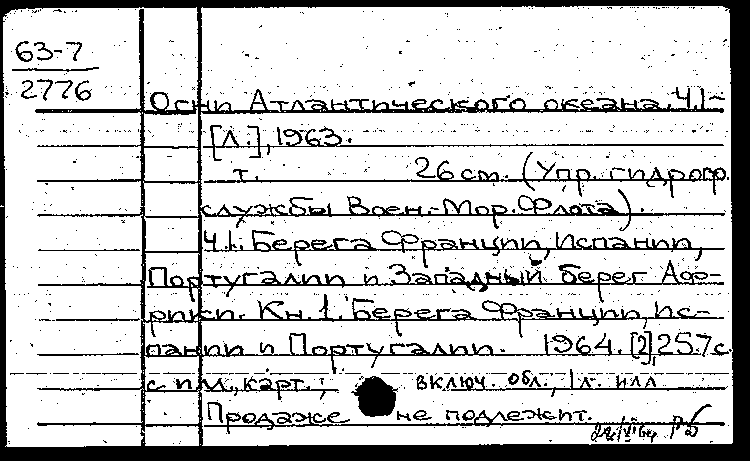 63-7
2776
Огни Атлантического океана. Ч.1-
[Л.], 1963.
т. 26 см. (Упр. гидрогр.
службы Воен.-Мор. Флота).
Ч.1. Берега Франции, Испании,
Португалии и Западный берег Аф-
рики. Кн. 1. Берега Франции, Ис-
пании и Португалии. 1964. [2], 257 с.
с илл., карт.; включ. обл., 1 л. илл.
Продаже не подлежит.
РБ